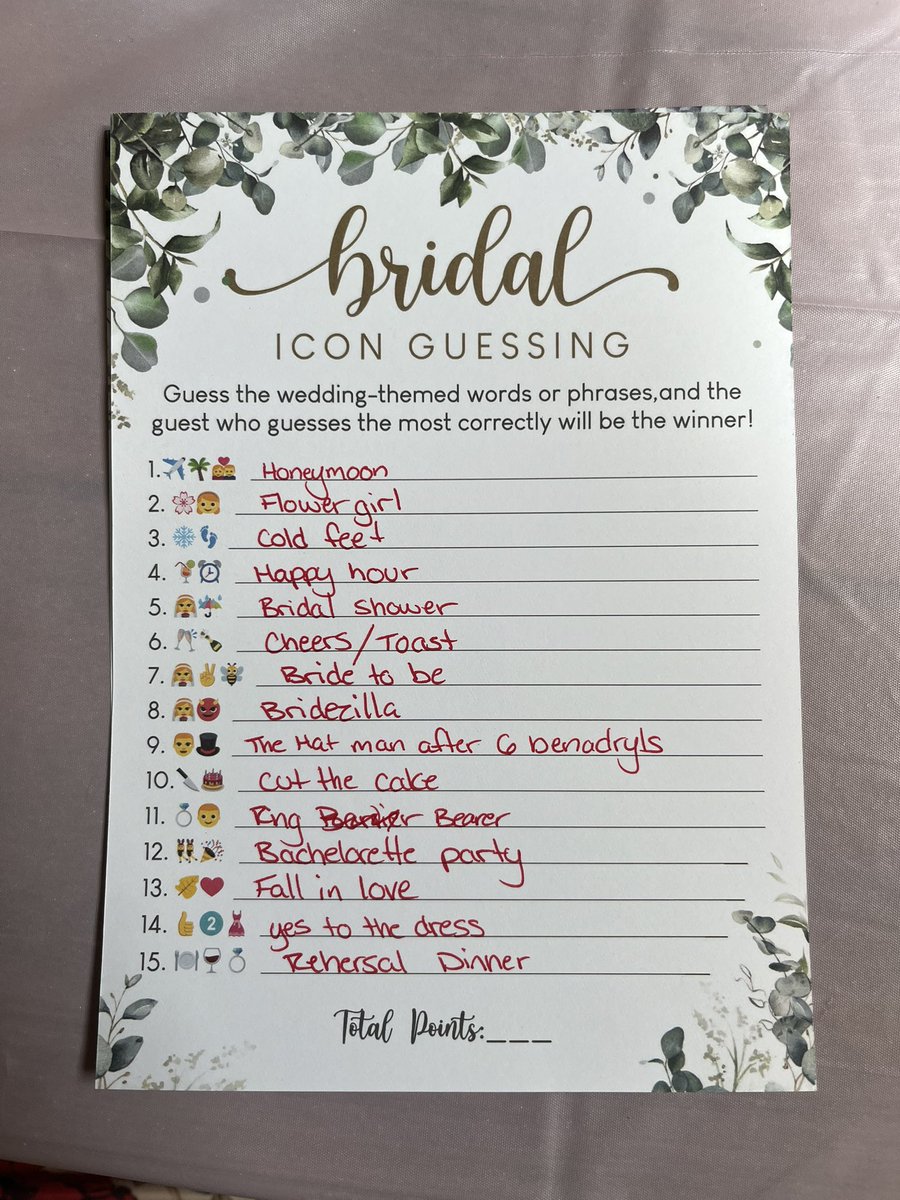 bridal
ICON GUESSING
Guess the wedding-themed words or phrases,and the
guest who guesses the most correctly will be the winner!
1. Honeymoon
2. Flower girl
3. Cold feet
4. Happy hour
5. Bridal shower
6. Cheers/Toast
7. Bride to be
8. Bridezilla
9. The Hat man after 6 benadryls
10. Cut the cake
11. Ring Bearer
12. Bachelorette party
13. Fall in love
14. 2 yes to the dress
15. Rehersal Dinner
Total Points:___